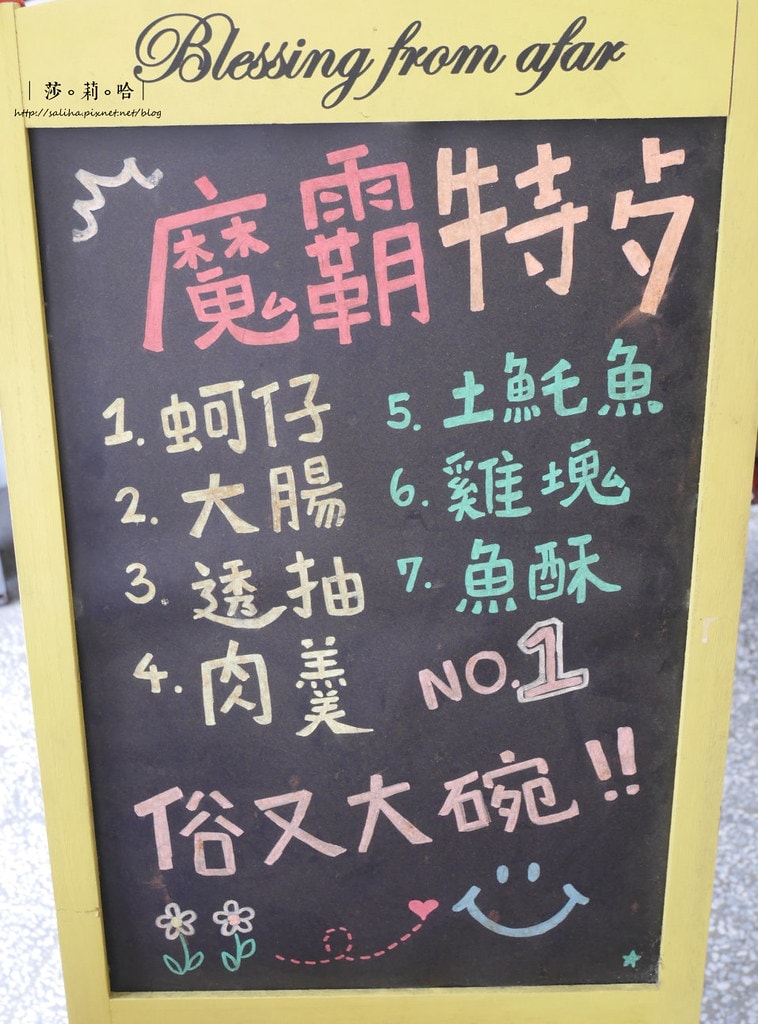 Blessing from afar
|莎。莉。哈|
http://saliha.pixnet.net/blog
魔霸特歺
1. 蚵仔
2. 大腸
3. 透抽
4. 肉羹
5. 土魠魚
6. 雞塊
7. 魚酥
NO.1
俗又大碗!!